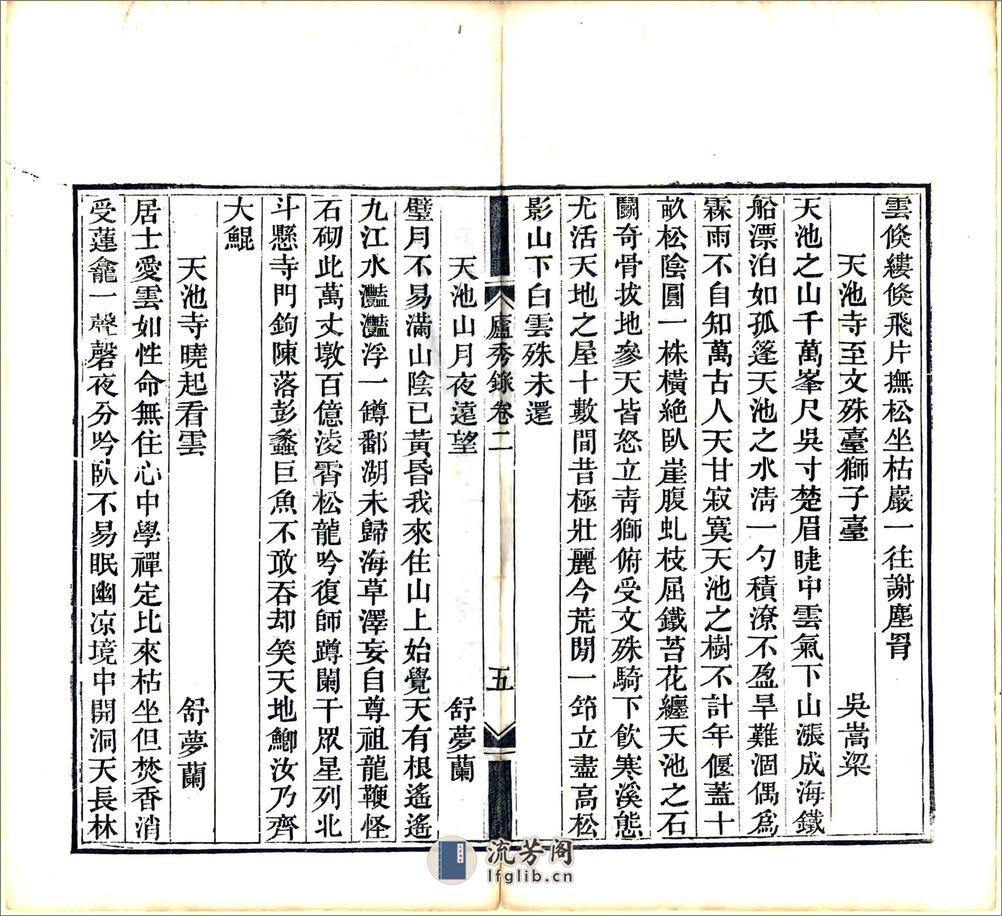 雲倏縷倏飛片撫松坐枯巖一往謝塵罥
天池寺至文殊臺獅子臺 吳嵩梁
天池之山千萬峯尺吳寸楚眉睫中雲氣下山漲成海鐵
船漂泊如孤篷天池之水淸一勺積潦不盈旱難涸偶爲
霖雨不自知萬古人天甘寂寞天池之樹不計年偃蓋十
畝松陰圓一株橫絶臥崖腹虬枝屈鐵苔花纏天池之石
鬭奇骨拔地參天皆怒立靑獅俯受文殊騎下飮寒溪態
尤活天地之屋十數間昔極壯麗今荒閒一笻立盡高松
影山下白雲殊未還
廬秀錄卷二 五
天池山月夜遠望 舒夢蘭
璧月不易滿山陰已黃昏我來住山上始覺天有根遙遙
九江水灩灩浮一罇鄱湖未歸海草澤妄自尊祖龍鞭怪
石砌此萬丈墩百億淩霄松龍吟復師蹲闌干眾星列北
斗懸寺門鉤陳落彭蠡巨魚不敢吞却笑天地鯽汝乃齊
大鯤
天池寺曉起看雲 舒夢蘭
居士愛雲如性命無住心中學禪定比來枯坐但焚香消
受蓮龕一聲磬夜分吟臥不易眠幽凉境中開洞天長林
流芳阁
lfglib.cn